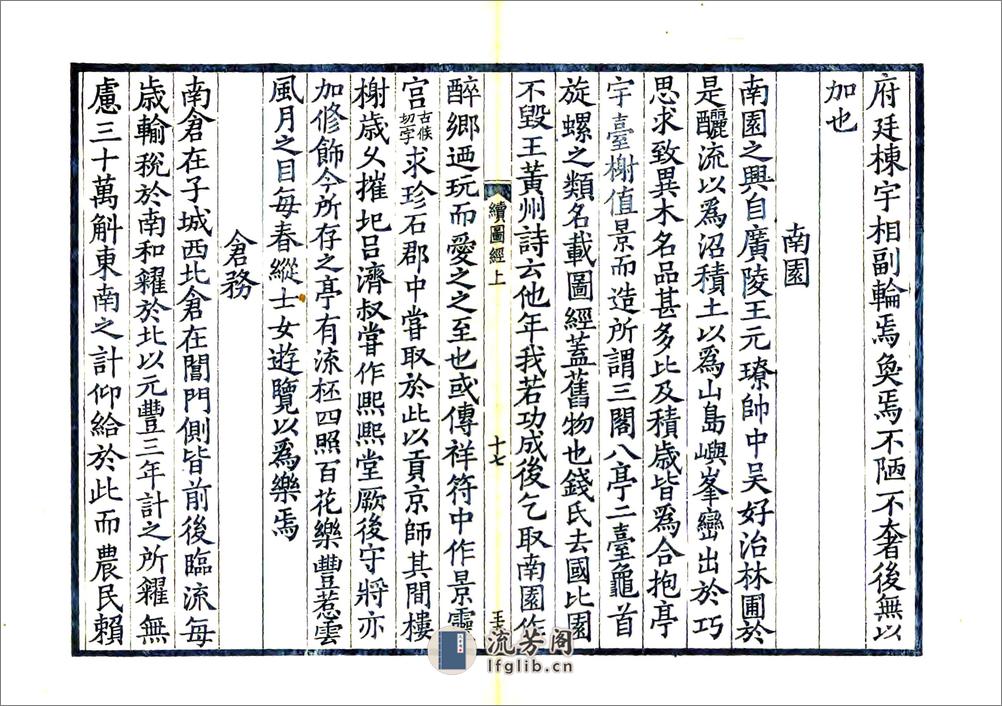 府廷棟宇相副輪焉奐焉不陋不奢後無以
加也
南園
南園之興自廣陵王元璙帥中吳好治林圃於
是釃流以爲沼積土以爲山島嶼峯巒出於巧
思求致異木名品甚多比及積歲皆爲合抱亭
宇臺榭值景而造所謂三閣八亭二臺龜首
旋螺之類名載圖經蓋舊物也錢氏去國此園
不毀王黃州詩云他年我若功成後乞取南園作
續圖經上
十七
醉鄉迺玩而愛之之至也或傳祥符中作景靈
宮古候切字求珍石郡中嘗取於此以貢京師其間樓
榭歲久摧圯吕濟叔嘗作熙熙堂厥後守將亦
加修飾今所存之亭有流杯四照百花樂豐惹雲
風月之目每春縱士女遊覽以爲樂焉
倉務
南倉在子城西北倉在閶門側皆前後臨流每
歲輸稅於南和糴於北以元豐三年計之所糴無
慮三十萬斛東南之計仰給於此而農民賴
流芳阁
lfglib.cn